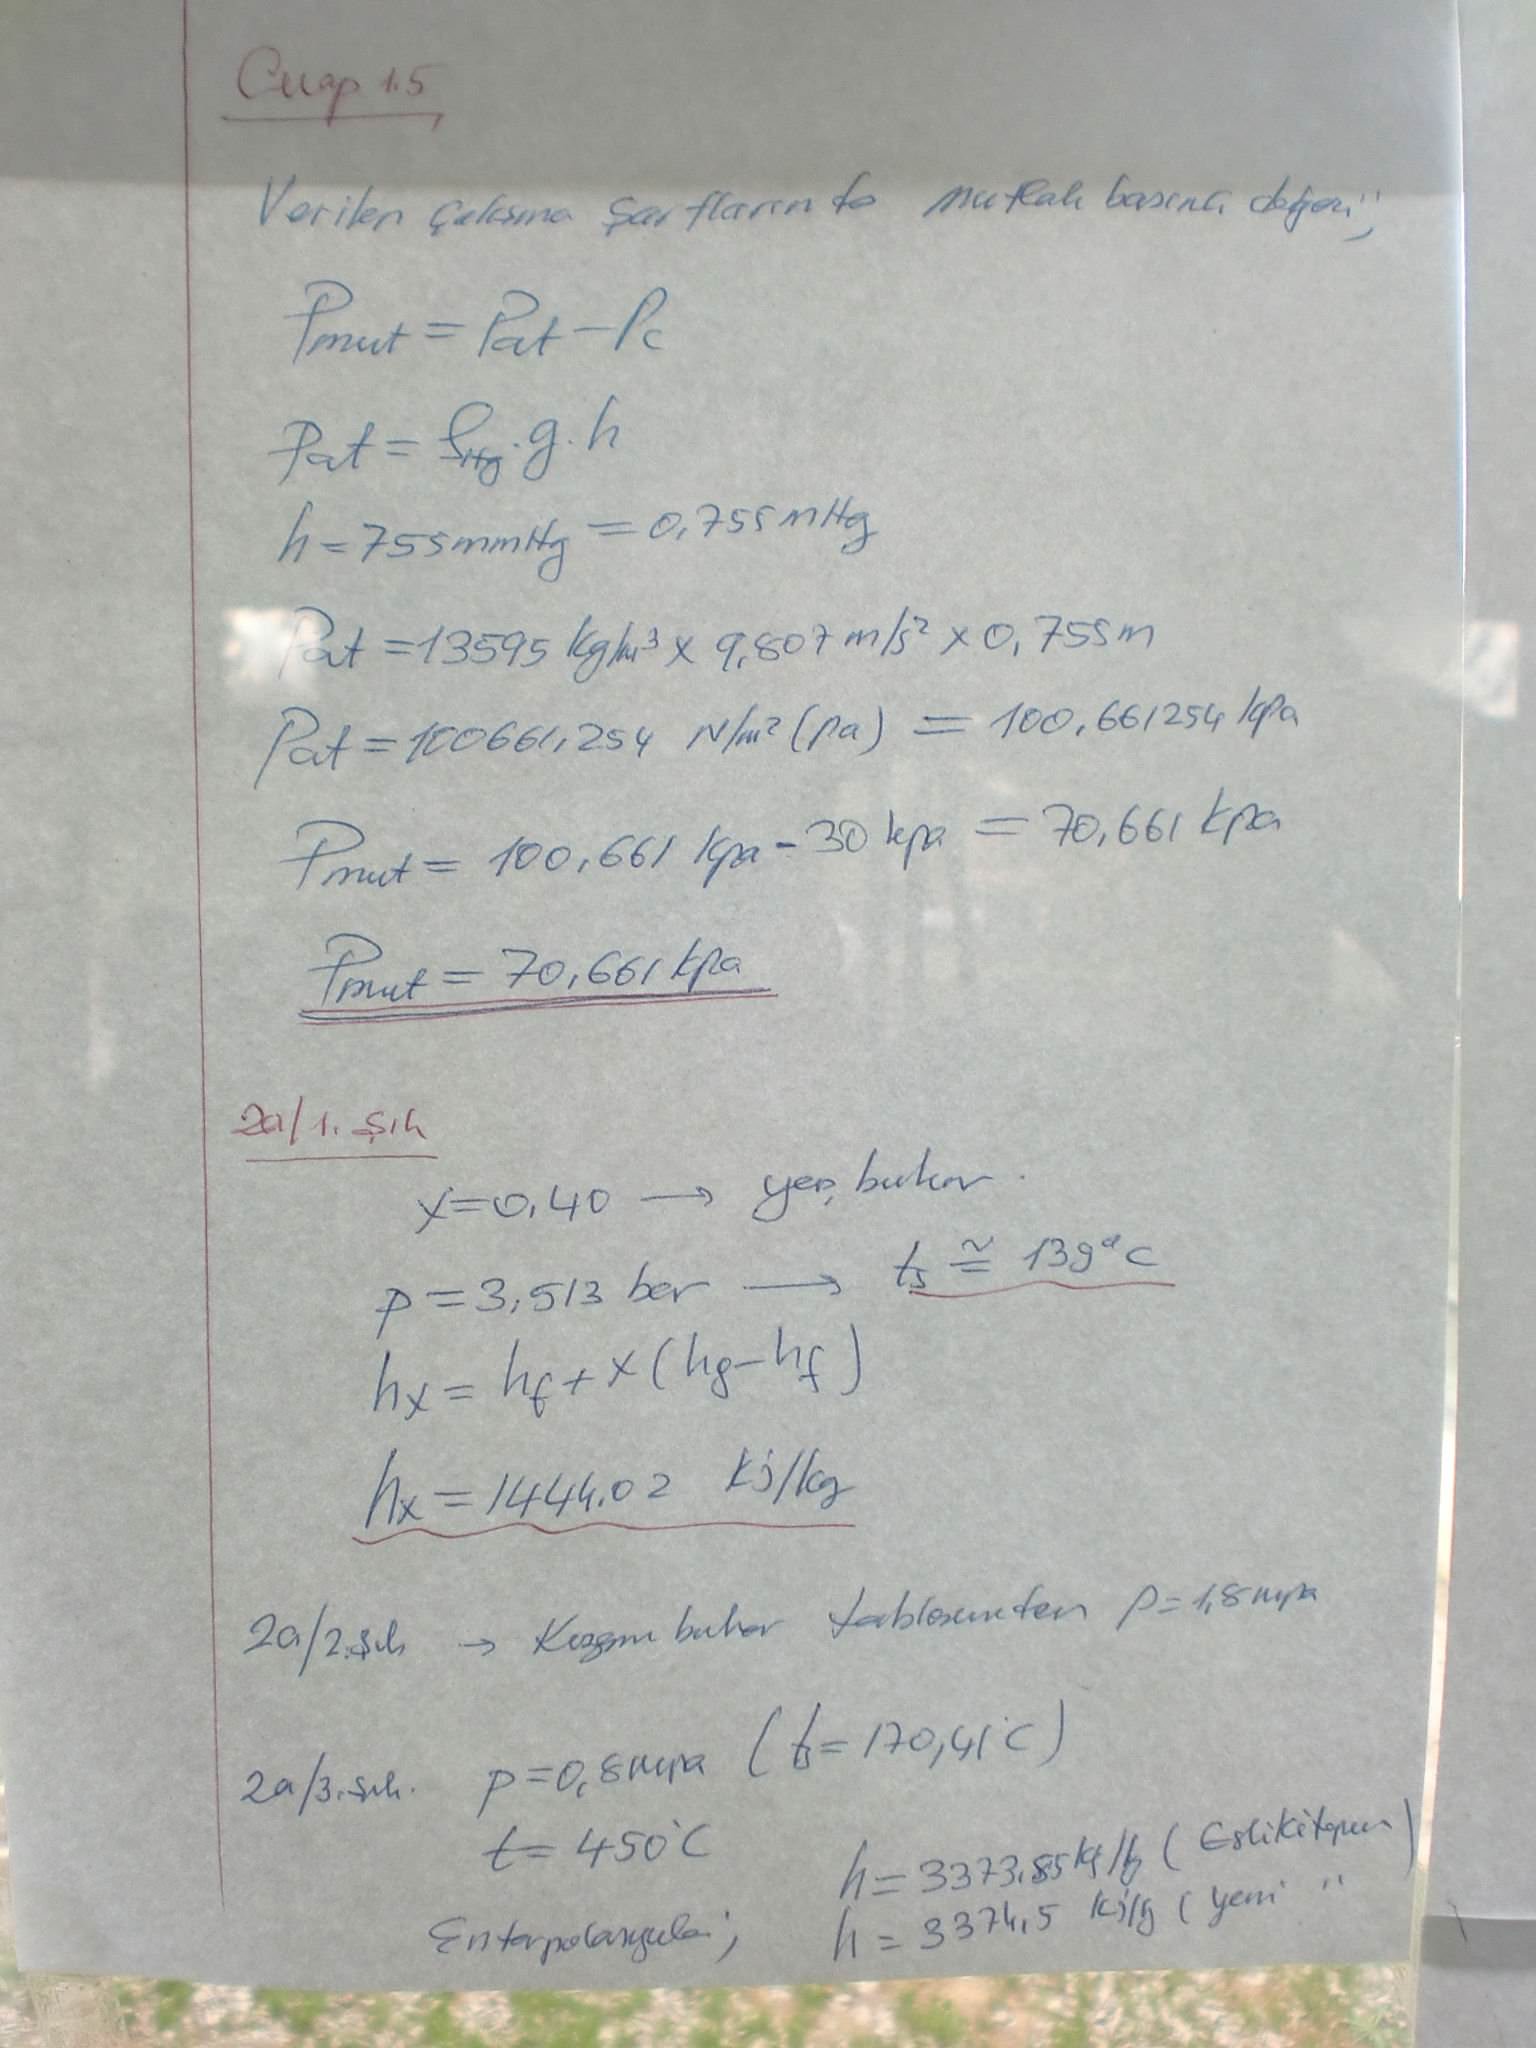 Cevap 1.5
Verilen çalışma şartlarında mutlak basınç değeri;
Pmut = Pat - Pc
Pat = ρHg . g . h
h = 755 mmHg = 0,755 mHg
Pat = 13595 kg/m³ x 9,807 m/s² x 0,755 m
Pat = 100661,254 N/m² (pa) = 100,661254 kpa
Pmut = 100,661 kpa - 30 kpa = 70,661 kpa
Pmut = 70,661 kpa
2a/1. şık
x = 0,40 → yaş buhar.
p = 3,513 bar → ts ≅ 139°C
hx = hf + x (hg - hf)
hx = 1444.02 kj/kg
2a/2. şık → Kızgın buhar tablosundan p = 1,8 mpa
2a/3. şık. p = 0,8 mpa (ts = 170,41°C)
t = 450°C
h = 3373,85 kj/kg (Eski kitapdan)
Enterpolasyonla; h = 3374,5 kj/kg (yeni "